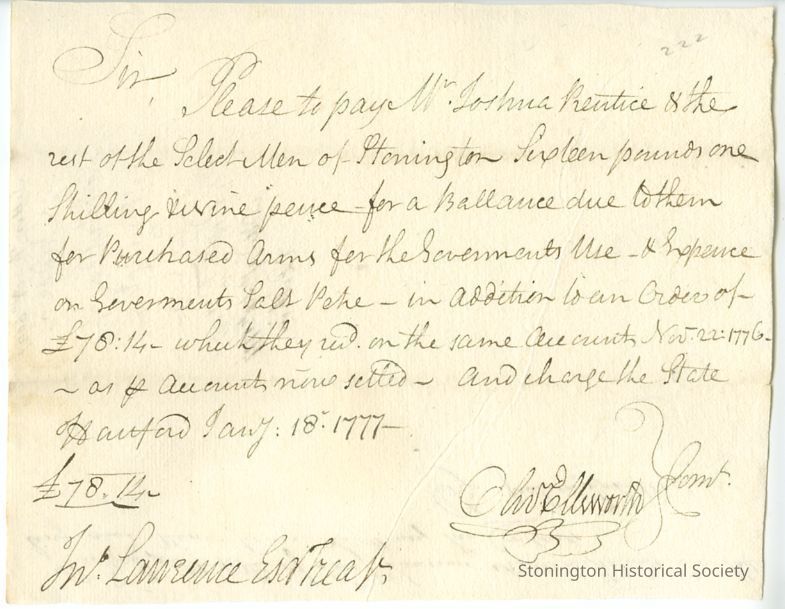 222
Sir,
Please to pay Mr. Joshua Prentice & the
rest of the Select Men of Stonington Sixteen pounds one
Shilling & nine pence for a Ballance due to them
for Purchased Arms for the Goverments Use - & Expence
on Goverments Salt Petre - in addition to an Order of -
£78:14 - which they recd. on the same Account Novr. 22: 1776 -
- as pr Accounts now settled - and charge the State
Hartford Jany: 18: 1777 -
£78.14 -
Olivr Ellsworth Comt.
Jno. Lawrence Esqr Treasr
Stonington Historical Society